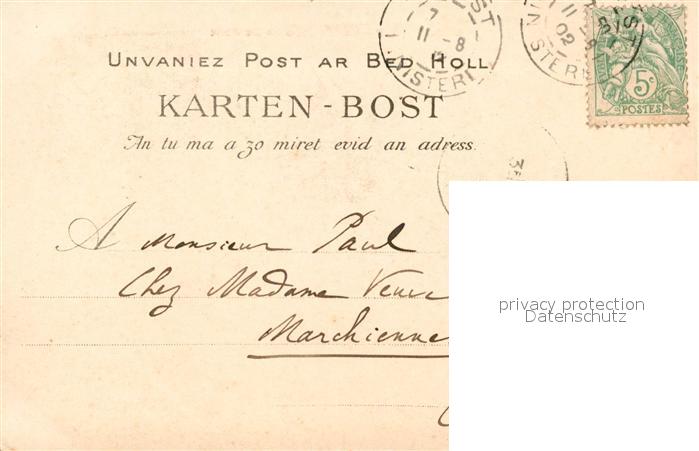 UNVANIEZ POST AR BED HOLL
KARTEN-BOST
An tu ma a zo miret evid an adress
5c
POSTES
A Monsieur Paul
Chez Madame
Marchienne
privacy protection
Datenschutz